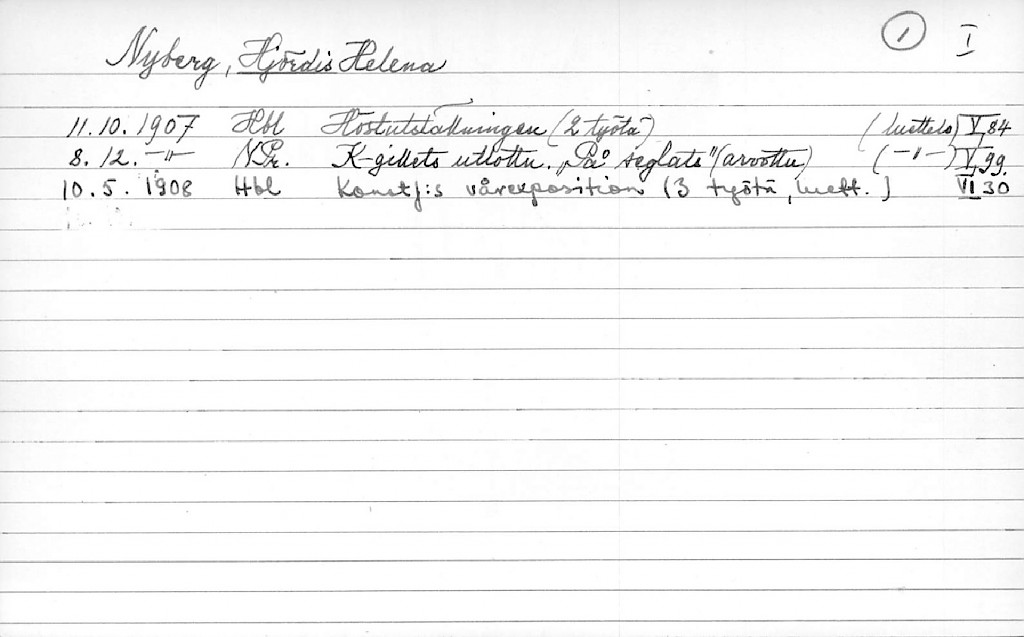 1 I
Nyberg, Hjördis Helena
11.10. 1907 Hbl Höstutställningen (2 työtä) (luettelo) V 84
8. 12. -"- N.Pr. K-gillets utlottn. "På seglats" (arvottu) (-"-) V 99.
10. 5. 1908 Hbl Konstf:s vårexposition (3 työtä, luett.) VI 30